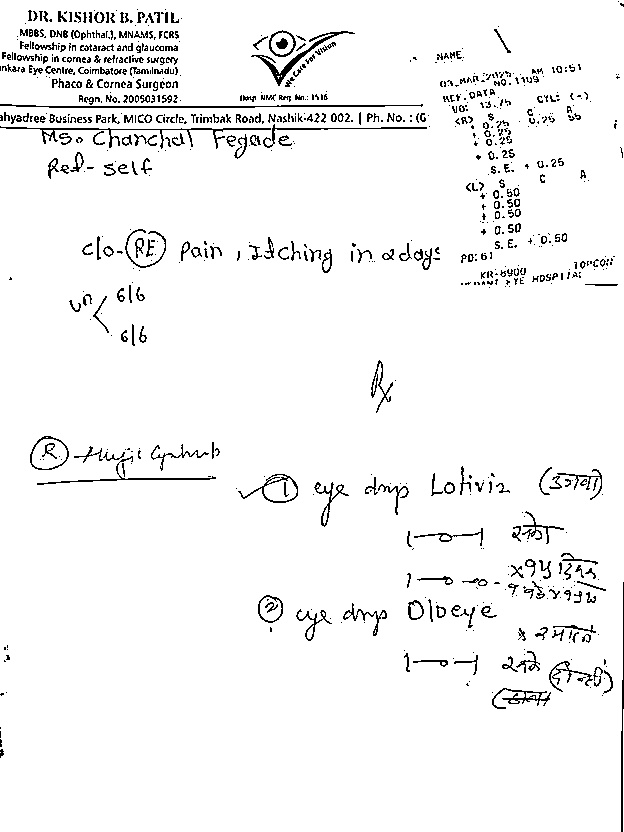 DR. KISHOR B. PATIL
MBBS, DNB (Ophthal.), MNAMS, FCRS
Fellowship in cataract and glaucoma
Fellowship in cornea & refractive surgery
nkara Eye Centre, Coimbatore (Tamilnadu)
Phaco & Cornea Surgeon
Regn. No. 2005031592
We Care For Vision
Hosp. NMC Reg No.: 1516
ahyadree Business Park, MICO Circle, Trimbak Road, Nashik-422 002. | Ph. No. : (0
NAME
03.MAR.2025 AM 10:51
NO. 1109
REF. DATA
VD: 13.75 CYL: (-)
<R> S C A
+ 0.25 - 0.25 55
+ 0.25
+ 0.25
+ 0.25
S.E. + 0.25
<L> S C A
+ 0.50
+ 0.50
+ 0.50
+ 0.50
S.E. + 0.50
PD: 61
KR-8900 TOPCON
EYE HOSPITAL
Ms. Chanchal Fegade
Ref- self
c/o- RE pain, Itching in 2 days
Vn 6/6
6/6
Rx
R
1 eye drop Lotiviz (उजवा)
1—0—1
1—0—0- x १५ दिवस
2 eye drop Oloeye
1—0—1